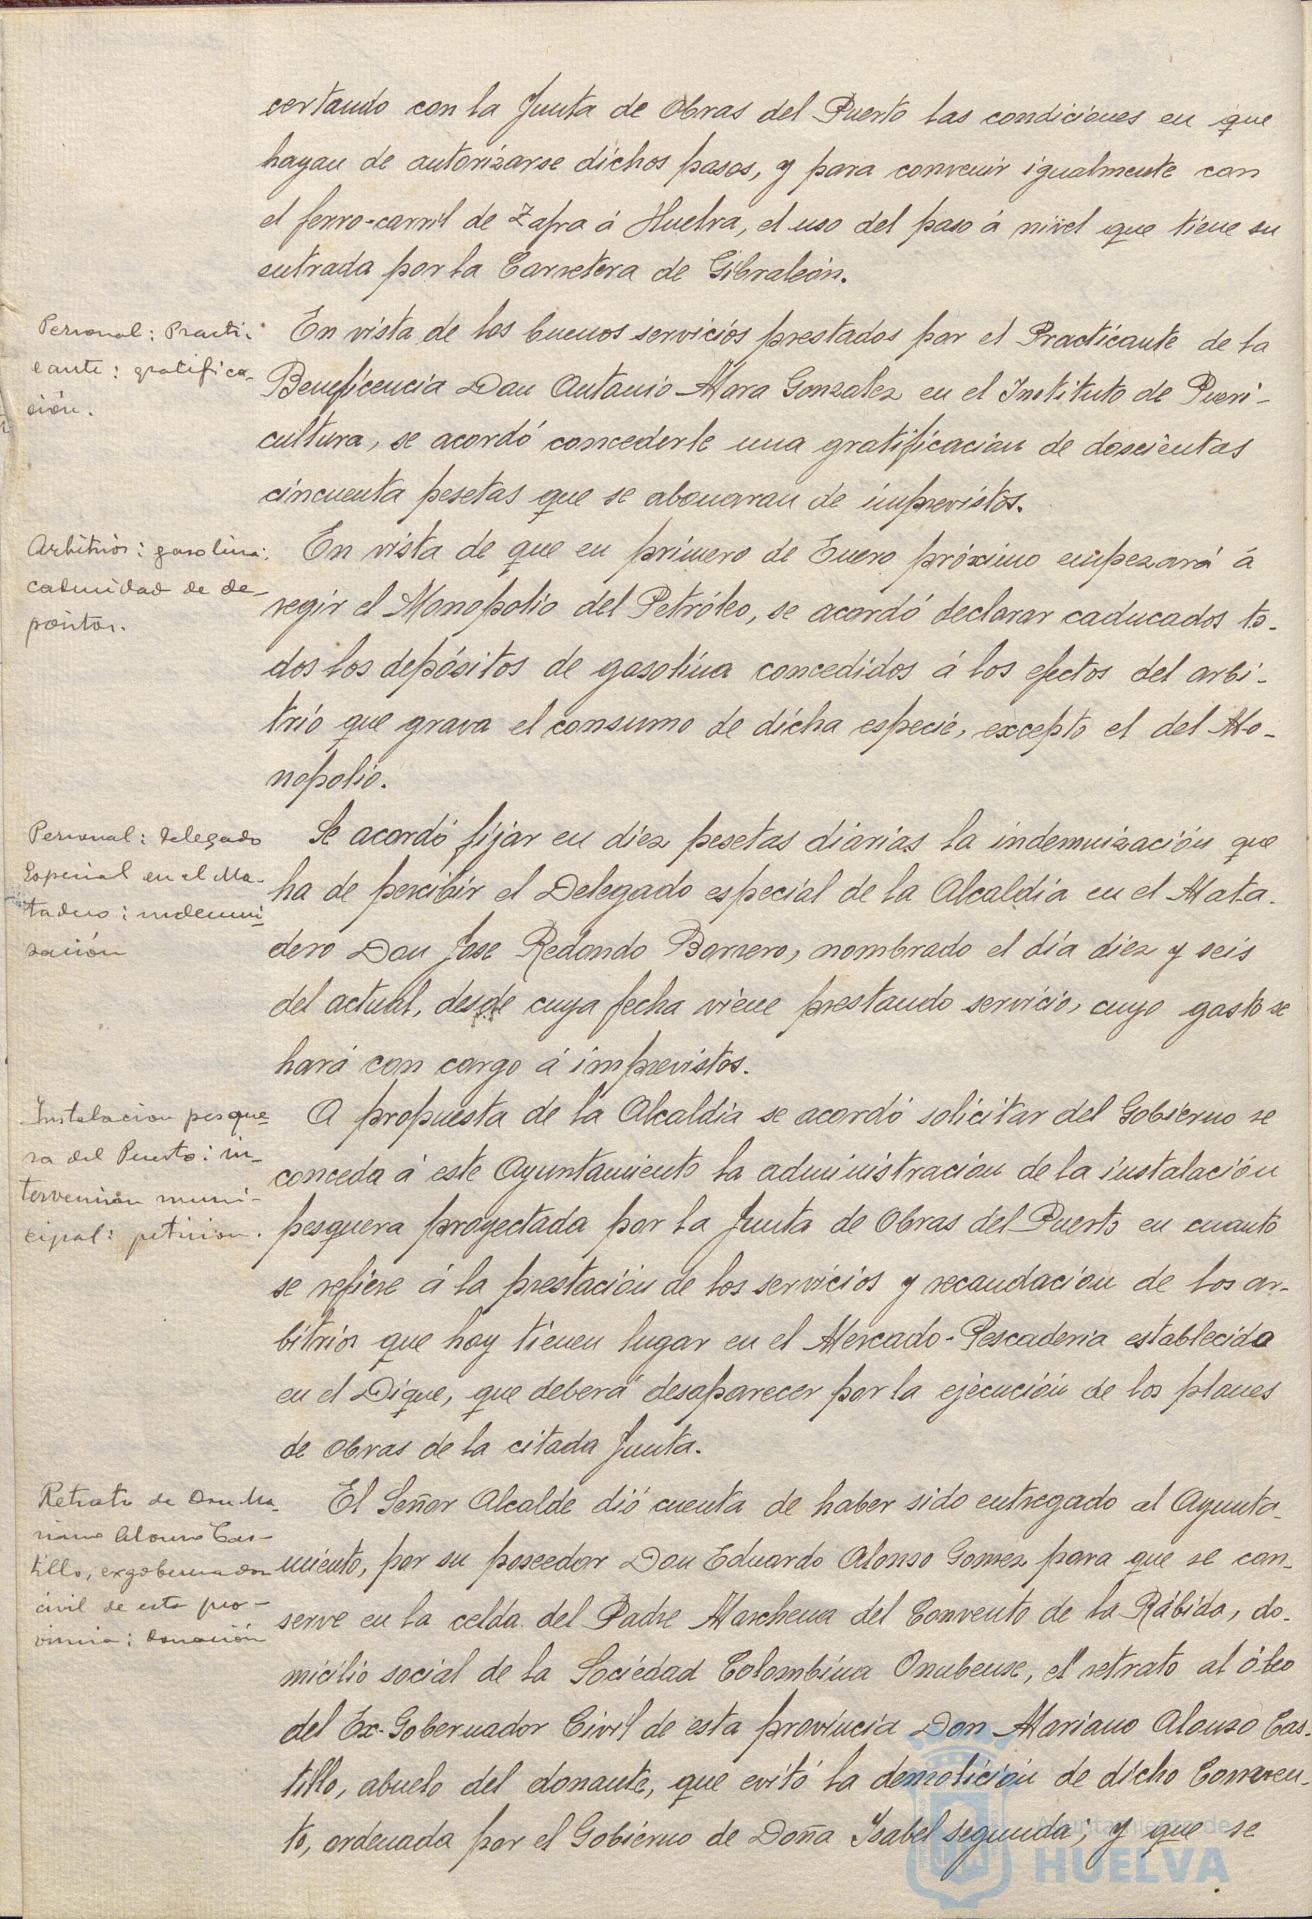 certando con la Junta de Obras del Puerto las condiciones en que
hayan de autorizarse dichos pasos, y para convenir igualmente con
el ferro-carril de Zafra á Huelva, el uso del paso á nivel que tiene su
entrada por la Carretera de Gibraleón.
Personal: Practi-
cante: gratifica-
ción.
En vista de los buenos servicios prestados por el Practicante de la
Beneficencia Don Antonio Mora Gonzalez en el Instituto de Pueri-
cultura, se acordó concederle una gratificacion de doscientas
cincuenta pesetas que se abonaran de imprevistos.
Arbitrios: gasolina:
caducidad de de-
pósitos.
En vista de que en primero de Enero próximo empezará á
regir el Monopolio del Petróleo, se acordó declarar caducados to-
dos los depósitos de gasolina concedidos á los efectos del arbi-
trio que grava el consumo de dicha especie, excepto el del Mo-
nopolio.
Personal: Delegado
Especial en el Ma-
tadero: indemni-
zación
Se acordó fijar en diez pesetas diarias la indemnización que
ha de percibir el Delegado especial de la Alcaldía en el Mata-
dero Don Jose Redondo Borrero, nombrado el día diez y seis
del actual, desde cuya fecha viene prestando servicio, cuyo gasto se
hará con cargo á imprevistos.
Instalacion pesque-
ra del Puerto: in-
tervención muni-
cipal: peticion.
A propuesta de la Alcaldía se acordó solicitar del Gobierno se
conceda á este Ayuntamiento la administración de la instalación
pesquera proyectada por la Junta de Obras del Puerto en cuanto
se refiere á la prestación de los servicios y recaudacion de los ar-
bitrios que hoy tienen lugar en el Mercado-Pescaderia establecido
en el Dique, que deberá desaparecer por la ejecución de los planes
de obras de la citada Junta.
Retrato de Don Ma-
riano Alonso Cas-
tillo, exgobernador
civil de esta pro-
vincia: donación
El Señor Alcalde dió cuenta de haber sido entregado al Ayunta-
miento, por su poseedor Don Eduardo Alonso Gomez para que se con-
serve en la celda del Padre Marchena del Convento de la Rábida, do-
micilio social de la Sociedad Colombina Onubense, el retrato al óleo
del Ex-Gobernador Civil de esta provincia Don Mariano Alonso Cas-
tillo, abuelo del donante, que evitó la demolición de dicho Conven-
to, ordenada por el Gobierno de Doña Isabel segunda; y que se
Ayuntamiento de
HUELVA